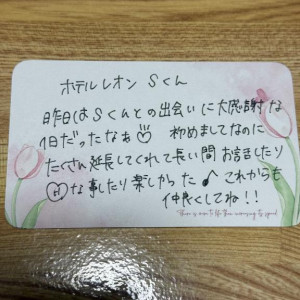 ホテルレオン Sくん
昨日はSくんとの出会いに大感謝な
1日だったなぁ♡ 初めましてなのに
たくさん延長してくれて長い間お話したり
♡な事したり楽しかった♪ これからも
仲良くしてね!!
There is more to life than increasing its speed.